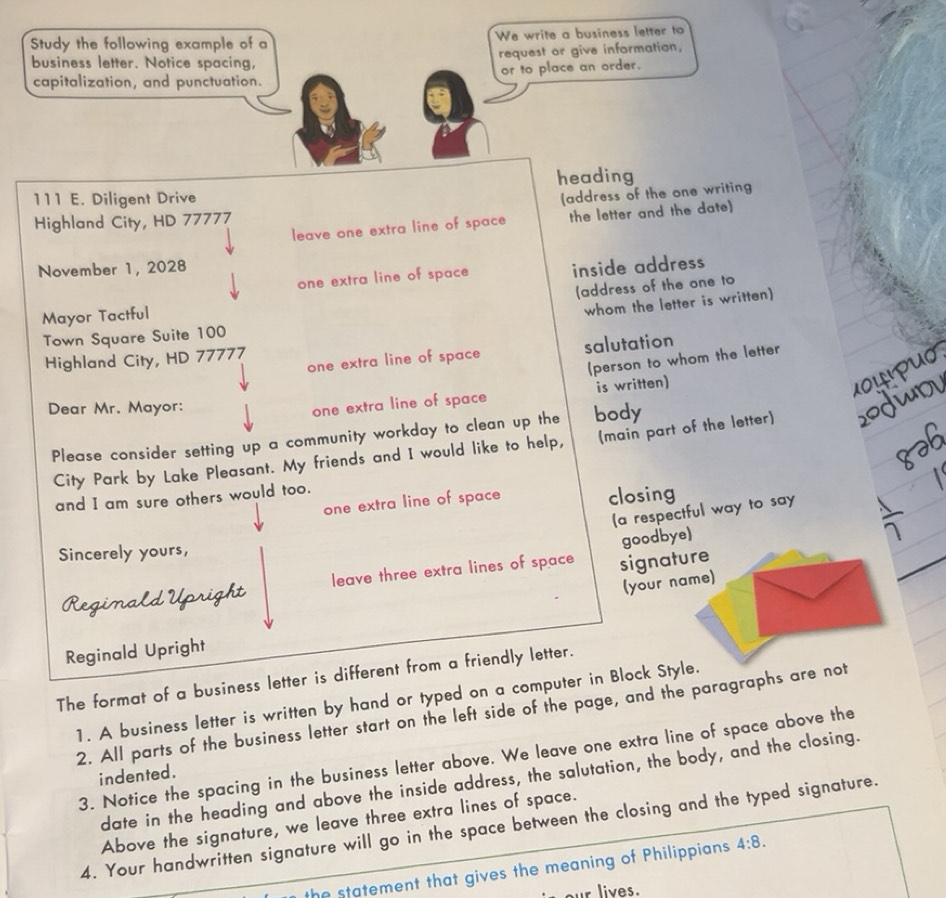 Study the following example of a
business letter. Notice spacing,
capitalization, and punctuation.
We write a business letter to
request or give information,
or to place an order.
111 E. Diligent Drive
Highland City, HD 77777
leave one extra line of space
November 1, 2028
one extra line of space
Mayor Tactful
Town Square Suite 100
Highland City, HD 77777
one extra line of space
Dear Mr. Mayor:
one extra line of space
Please consider setting up a community workday to clean up the
City Park by Lake Pleasant. My friends and I would like to help,
and I am sure others would too.
one extra line of space
Sincerely yours,
leave three extra lines of space
Reginald Upright
Reginald Upright
heading
(address of the one writing
the letter and the date)
inside address
(address of the one to
whom the letter is written)
salutation
(person to whom the letter
is written)
body
(main part of the letter)
closing
(a respectful way to say
goodbye)
signature
(your name)
The format of a business letter is different from a friendly letter.
1. A business letter is written by hand or typed on a computer in Block Style.
2. All parts of the business letter start on the left side of the page, and the paragraphs are not
indented.
3. Notice the spacing in the business letter above. We leave one extra line of space above the
date in the heading and above the inside address, the salutation, the body, and the closing.
Above the signature, we leave three extra lines of space.
4. Your handwritten signature will go in the space between the closing and the typed signature.
the statement that gives the meaning of Philippians 4:8.
our lives.